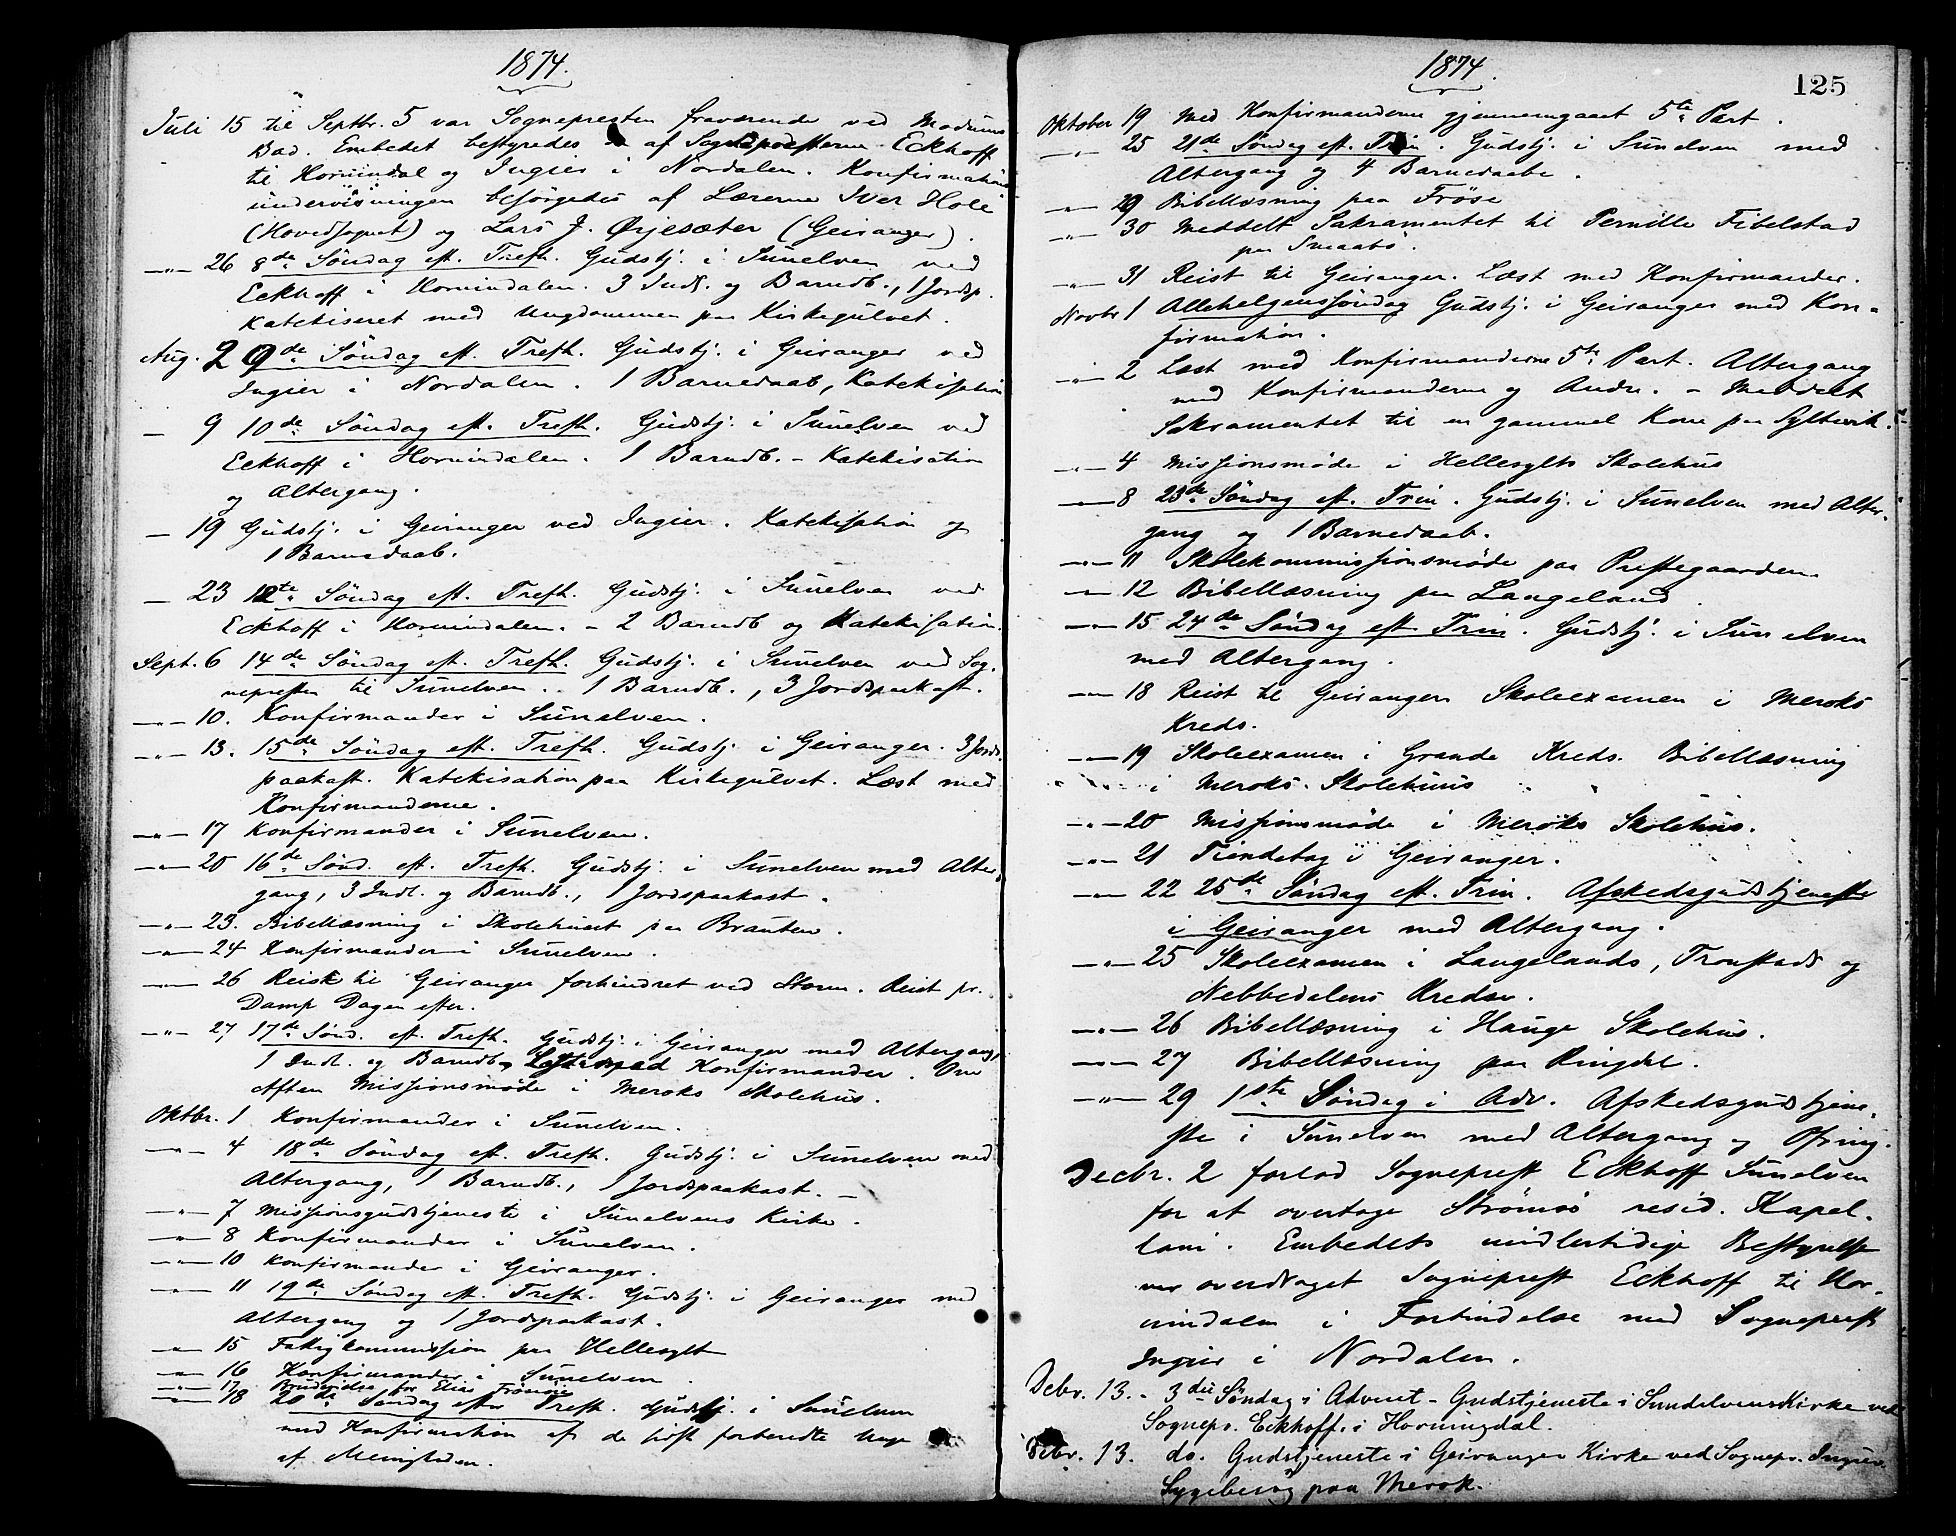 1874.
Juli 15 til Septbr. 5 var Sognepresten fraværende ved Modums
Bad. Embedet bestyredes af Sognepresterne Eckhoff
til Hornindal og Ingier i Nordalen. Konfirmations
undervisningen besørgedes af Lærerne Iver Hole
(Hovedsognet) og Lars J. Ørjesæter (Geiranger).
—"— 26 8de Søndag eft. Trefh. Gudstj. i Sunelven ved
Eckhoff i Hornindalen. 3 Indl. og Barndb., 1 Jordsp.
Katekiseret med Ungdommen paa Kirkegulvet.
Aug. 2 9de Søndag eft. Trefh. Gudstj. i Geiranger ved
Ingier i Nordalen. 1 Barnedaab, Katekisation
— 9 10de Søndag eft. Trefh. Gudstj. i Sunelven ved
Eckhoff i Hornindalen. 1 Barndb. – Katekisation
og Altergang.
— 19 Gudstj. i Geiranger ved Ingier. Katekisation og
1 Barnedaab.
— 23 12te Søndag eft. Trefh. Gudstj. i Sunelven ved
Eckhoff i Hornindalen. – 2 Barndb og Katekisation.
Sept. 6 14de Søndag eft. Trefh. Gudstj. i Sunelven ved Sog-
nepresten til Sunelven. 1 Barndb., 3 Jordspaakast.
—"— 10. Konfirmander i Sunelven.
—"— 13. 15de Søndag eft. Trefh. Gudstj. i Geiranger. 3 Jords-
paakast. Katekisation paa Kirkegulvet. Læst med
Konfirmanderne.
—"— 17 Konfirmander i Sunelven.
—"— 20 16de Sønd. eft. Trefh. Gudstj. i Sunelven med Alter-
gang, 3 Indl. og Barndb., 1 Jordspaakast.
—"— 23. Bibellæsning i Skolehuset paa Brauten.
—"— 24 Konfirmander i Sunelven.
—"— 26 Reise til Geiranger forhindret ved Storm. Reist pr.
Damp Dagen efter.
—"— 27 17de Sønd. eft. Trefh. Gudstj. i Geiranger med Altergang,
1 Indl. og Barndb. Læst med Konfirmander. Om
Aften Missionsmøde i Meroks Skolehus.
Oktbr. 1 Konfirmander i Sunelven.
—"— 4 18de Søndag eft. Trefh. Gudstj. i Sunelven med
Altergang, 1 Barndb., 1 Jordspaakast. –
—"— 7 Missionsgudstjeneste i Sunelvens Kirke.
—"— 8 Konfirmander i Sunelven.
—"— 10 Konfirmander i Geiranger.
—"— 11 19de Søndag eft. Trefh. Gudstj. i Geiranger med
Altergang og 1 Jordspaakast.
—"— 15 Fattigkommission paa Hellesylt
—"— 16 Konfirmander i Sunelven.
—"— 17 Brudevielse for Elias Frøysøie
—"— 18 20de Søndag efter Trefh. Gudstj. i Sunelven
med Konfirmation af de først forberedte Unge
af Menigheden.
1874.
125
Oktober 19 Med Konfirmanderne gjennemgaaet 5te Part.
—"— 25 21de Søndag eft. Trin. Gudstj. i Sunelven med
Altergang og 4 Barnedaabe.
—"— 29 Bibellæsning paa Frøse
—"— 30 Meddelt Sakramentet til Pernille Fibelstad
paa
—"— 31 Reist til Geiranger. Læst med Konfirmander.
Novbr 1 Allehelgenssøndag Gudstj. i Geiranger med Kon-
firmation.
—"— 2 Læst med Konfirmanderne 5te Part. Altergang
med Konfirmanderne og Andre. – Meddelt
Sakramentet til en gammel Kone paa Syltevik.
—"— 4 Missionsmøde i Hellesylts Skolehus
—"— 8 23de Søndag eft. Trin. Gudstj. i Sunelven med Alter-
gang og 1 Barnedaab.
—"— 11 Skolekommissionsmøde paa Prestegaarden.
—"— 12 Bibellæsning paa Langeland.
—"— 15 24de Søndag eft. Trin. Gudstj. i Sunelven
med Altergang.
—"— 18 Reist til Geiranger. Skoleexamen i Meroks
Kreds.
—"— 19 Skoleexamen i Grande Kreds. Bibellæsning
i Meroks Skolehus
—"— 20 Missionsmøde i Meroks Skolehus.
—"— 21 Tiendetag i Geiranger.
—"— 22 25de Søndag eft. Trin. Afskedsgudstjeneste
i Geiranger med Altergang.
—"— 25 Skoleexamen i Langelands, Tronstads og
Nebbedalens Kredse.
—"— 26 Bibellæsning i Hauge Skolehus.
—"— 27 Bibellæsning paa Ringdal.
—"— 29 1ste Søndag i Adv. Afskedsgudstjene-
ste i Sunelven med Altergang og Ofring.
Decbr. 2 forlod Sogneprest Eckhoff Sunelven
for at overtage Strømsø resid. Kapel-
lani. Embedets midlertidige Bestyrelse
var overdraget Sogneprest Eckhoff til Hor-
nindalen i Forbindelse med Sogneprest
Ingier i Nordalen.
Debr. 13. – 3die Søndag i Advent – Gudstjeneste i Sundelvens Kirke ved
Sognepr. Eckhoff i Horningdal.
Debr. 13. do. Gudstjeneste i Geiranger Kirke ved Sognepr. Ingier.
Sygebesøg paa Merok.